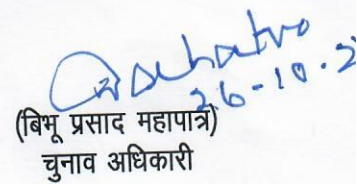 26-10-2
(बिभू प्रसाद महापात्र)
चुनाव अधिकारी